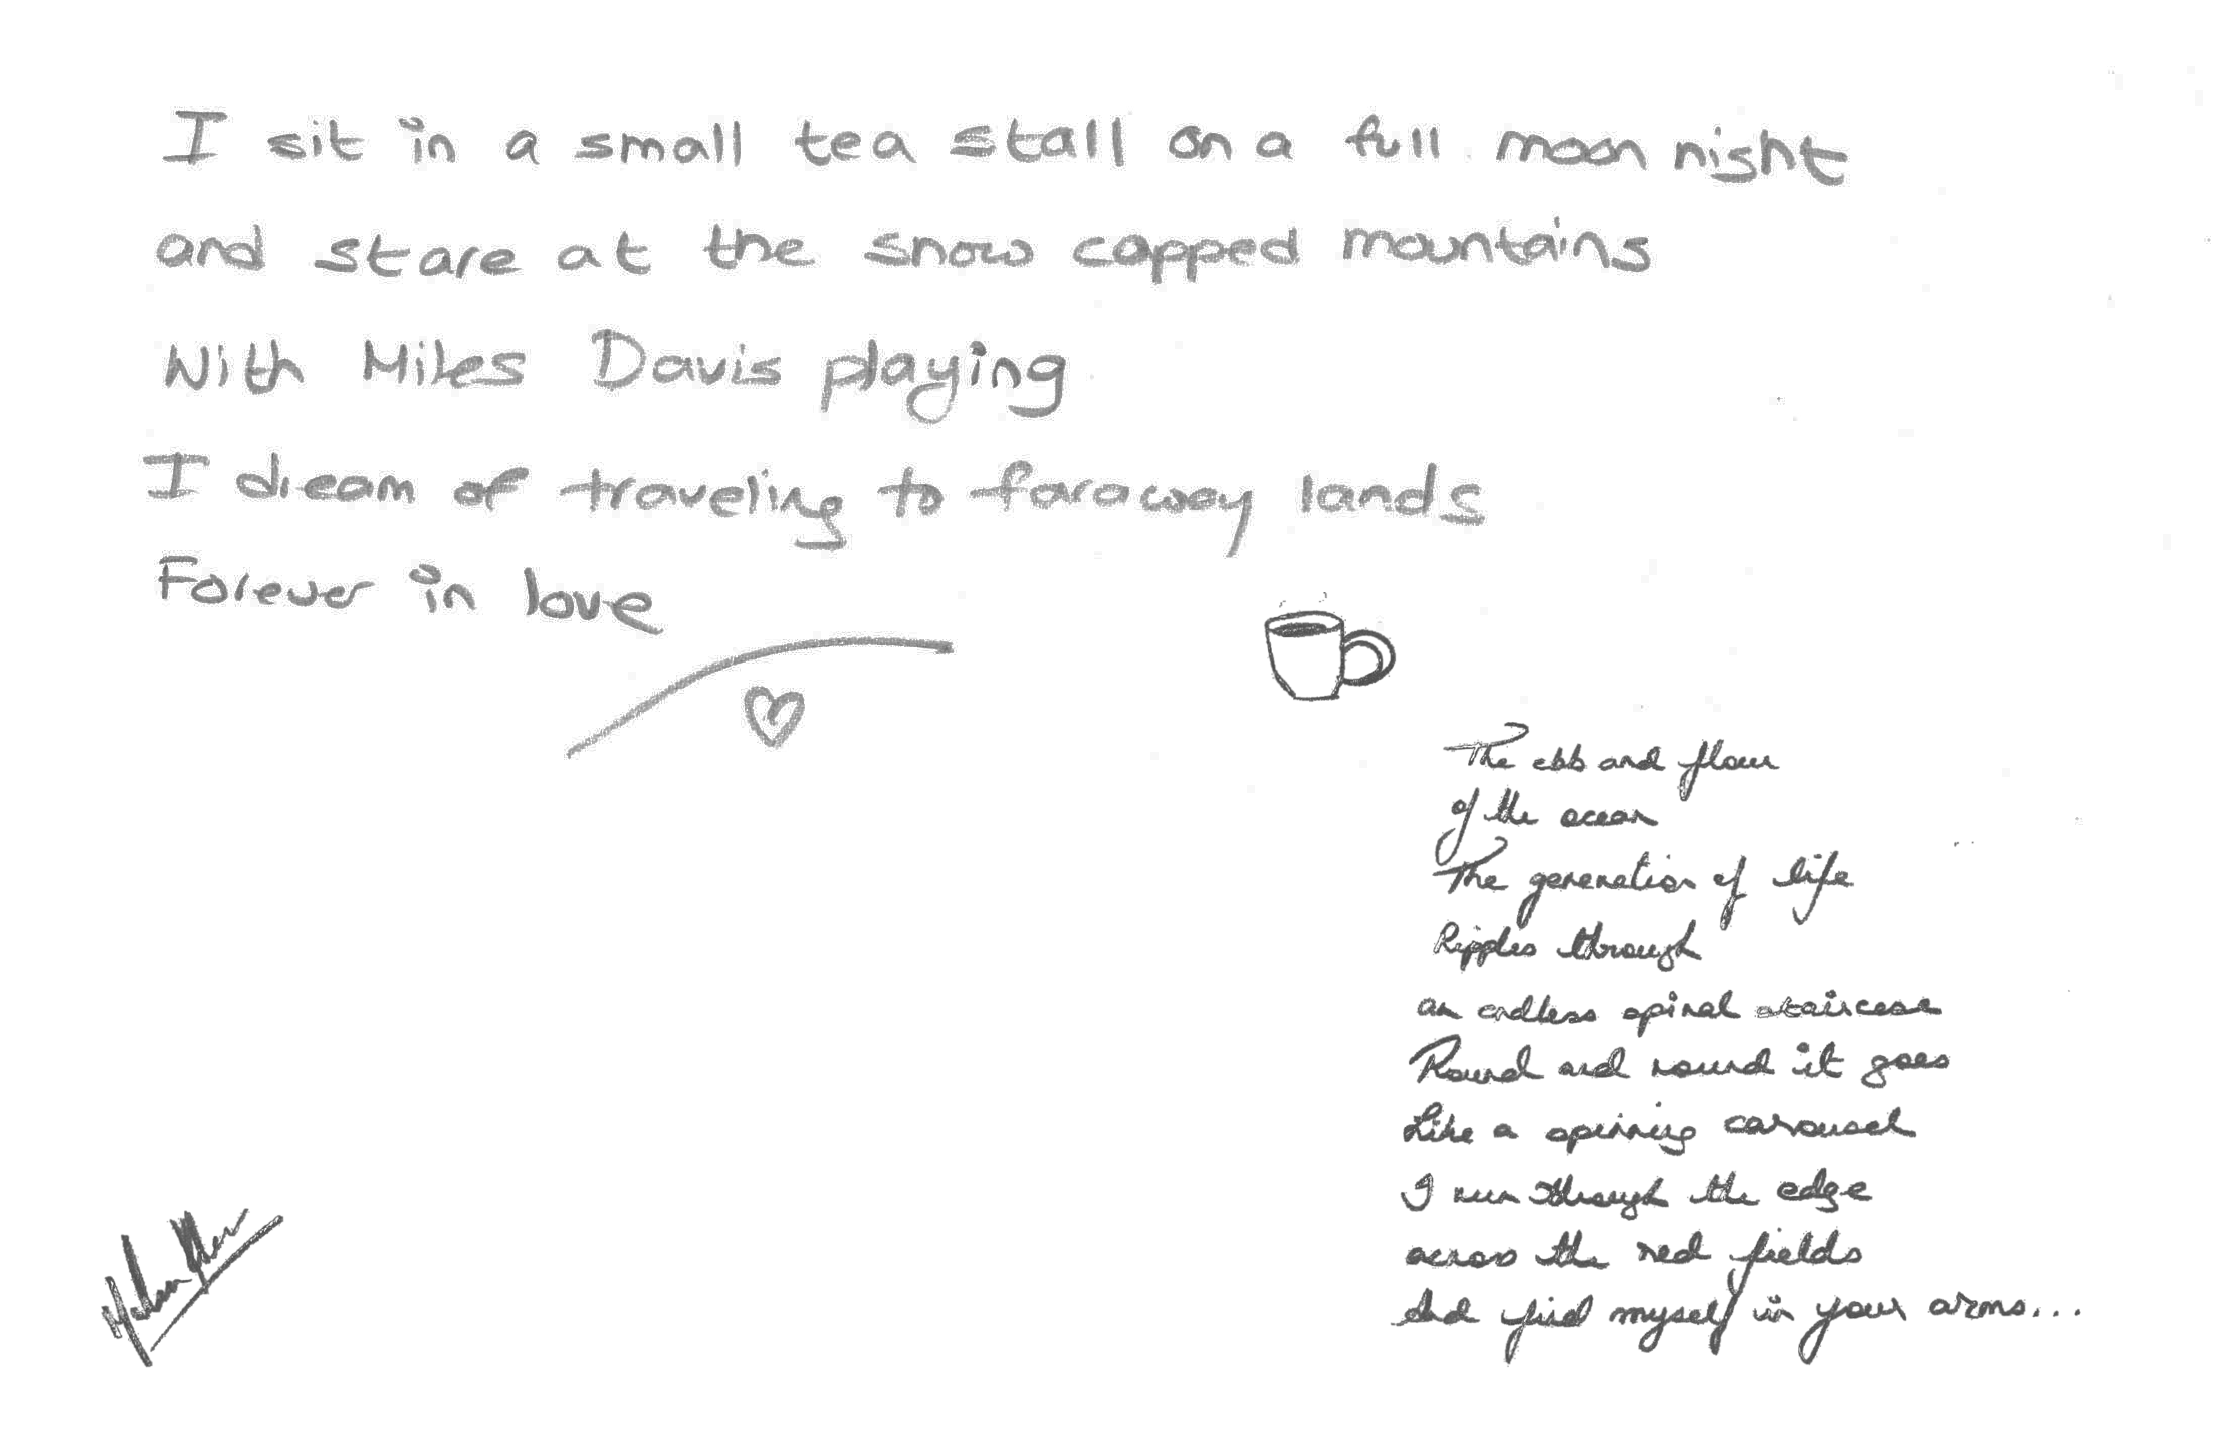 I sit in a small tea stall on a full moon night
and stare at the snow capped mountains
With Miles Davis playing
I dream of traveling to faraway lands
Forever in love
The ebb and flow
of the ocean
The generation of life
Ripples through
an endless spiral staircase
Round and round it goes
Like a spinning carousel
I run through the edge
across the red fields
And find myself in your arms...